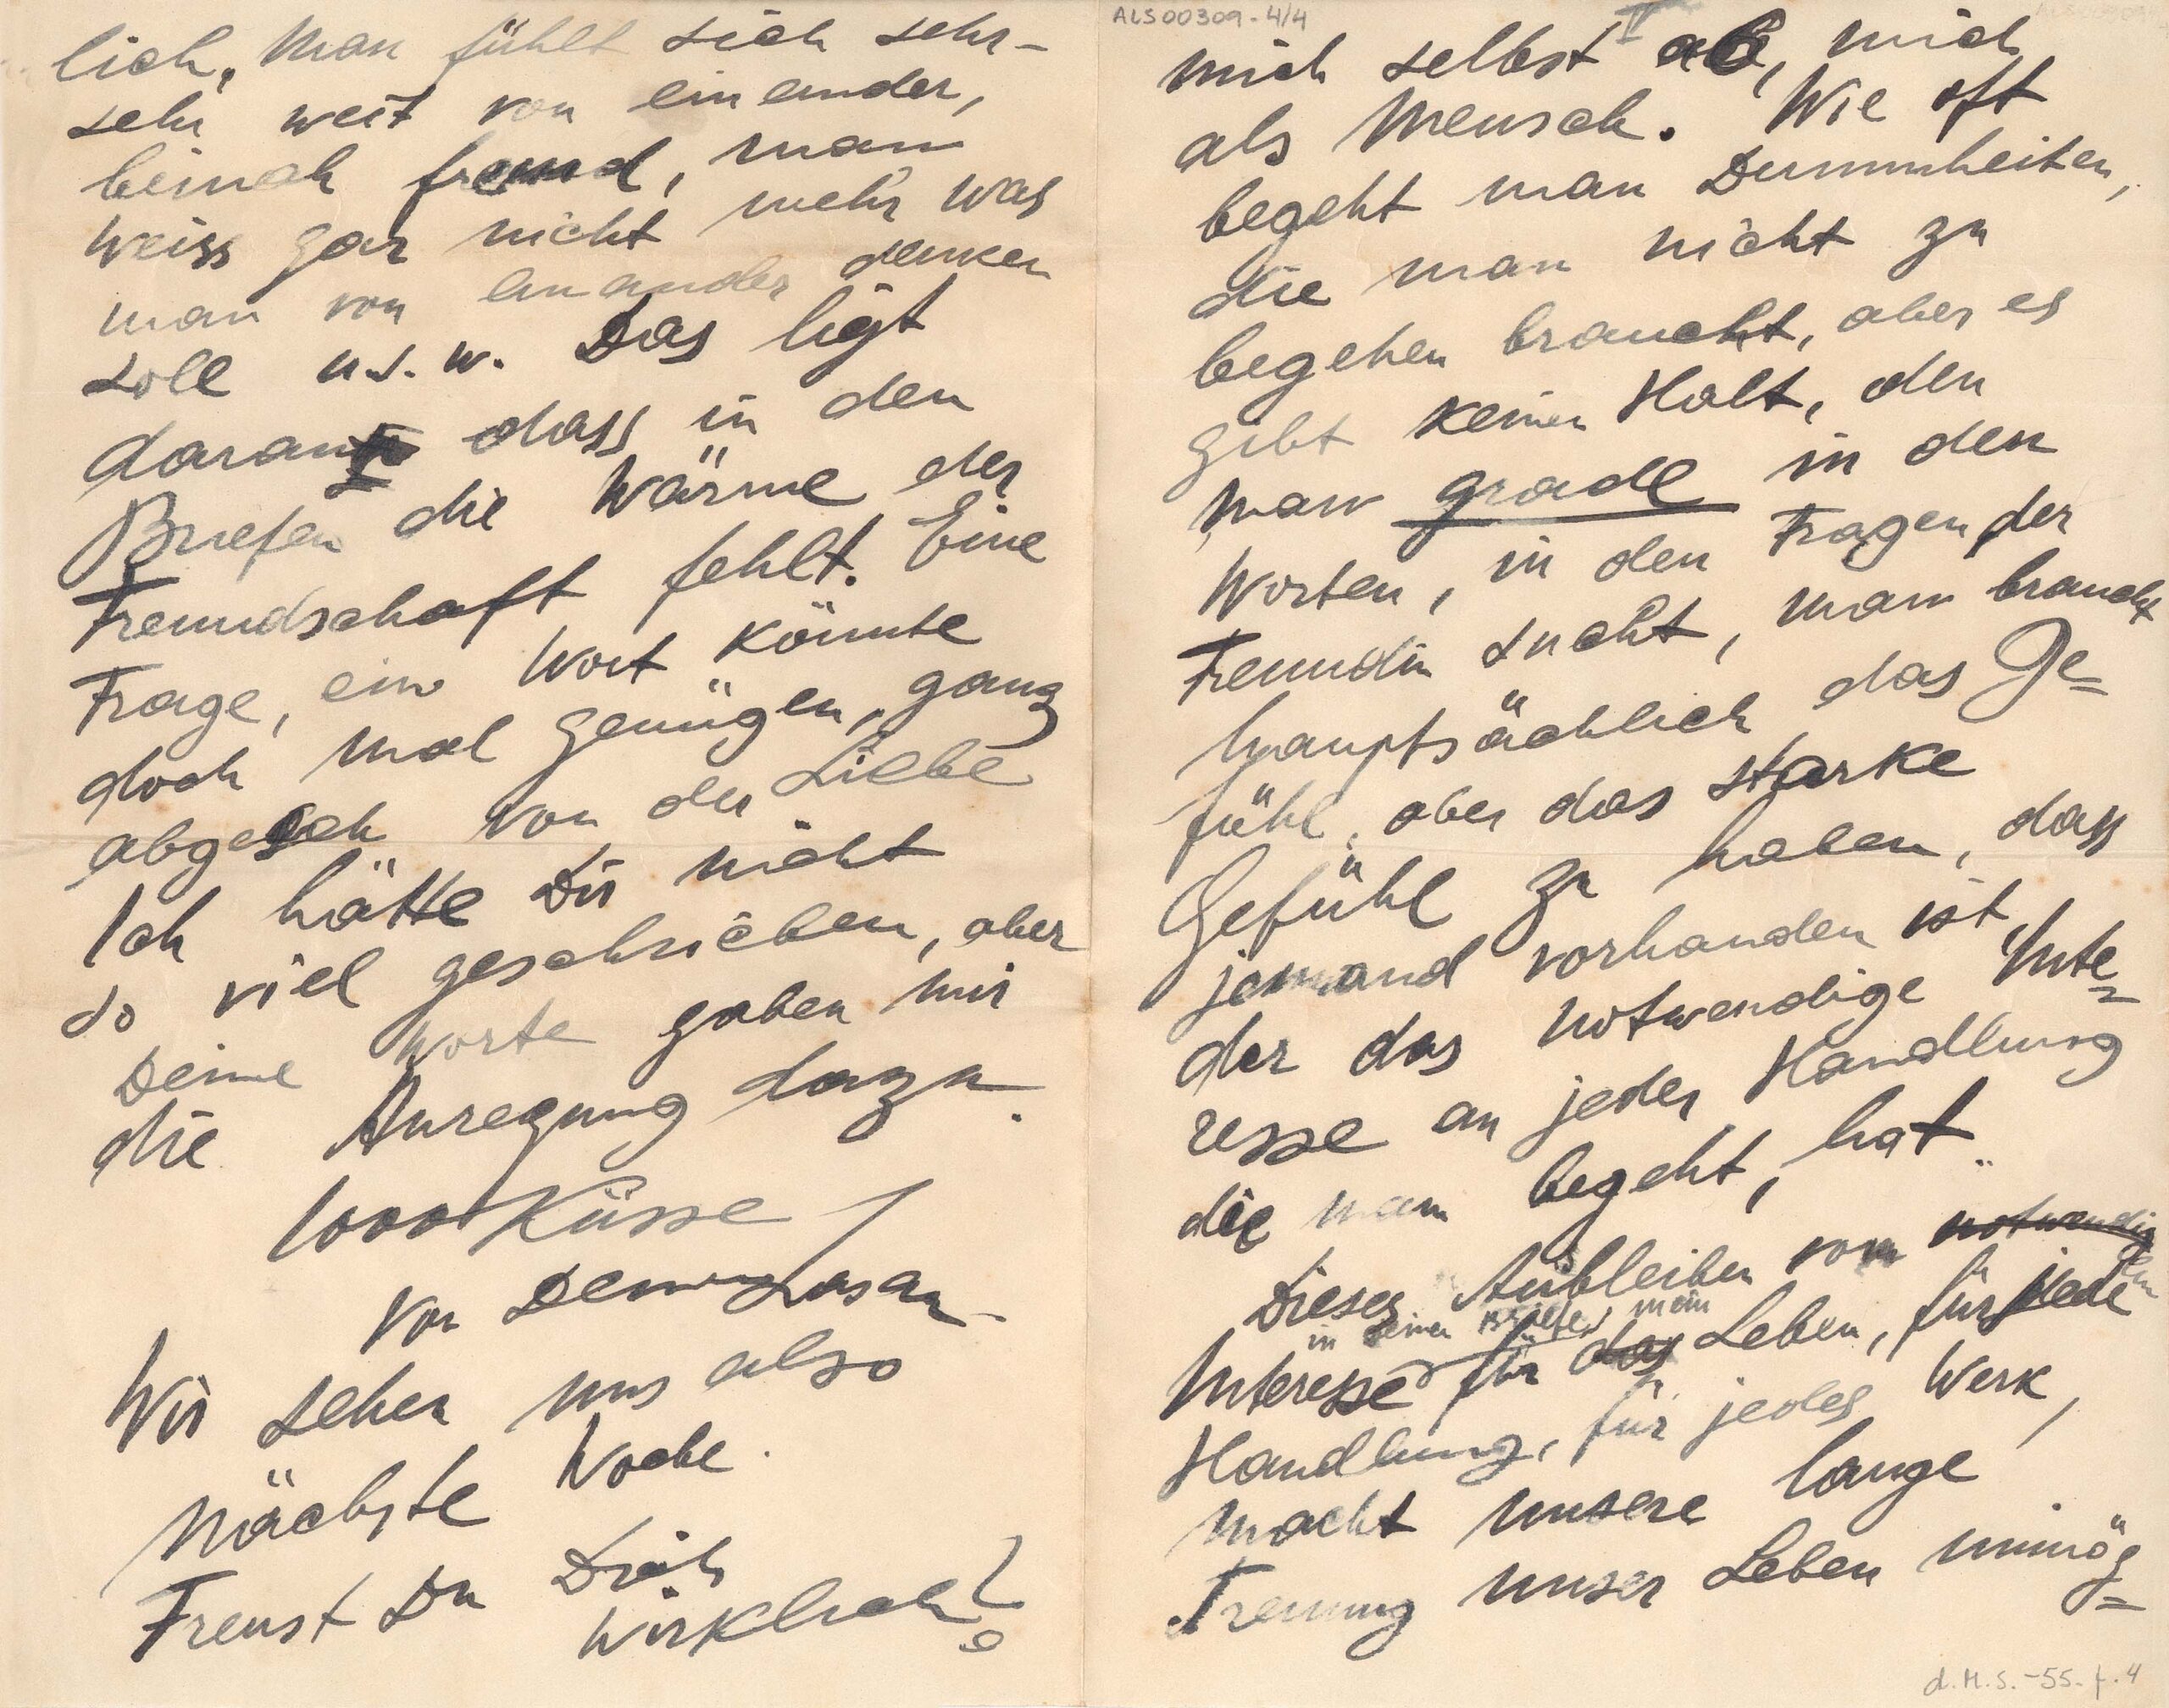 ALS00309-4/4
IV
mich selbst ab, mich
als Mensch. Wie oft
begeht man Dummheiten,
die man nicht zu
begehen braucht, aber es
gibt keinen Halt, den
man grade in den
Worten, in den Fragen der
Freundin sucht, man braucht
hauptsächlich das Ge=
fühl, aber das starke
Gefühl zu haben, dass
jemand vorhanden ist,
der das notwendige Inte=
resse an jeder Handlung
die man begeht, hat.
Dieses Ausbleiben vom notwendig
in Deinen Briefen mein
Interesse für das Leben, für jede
Handlung, für jedes Werk,
macht unsere lange
Trennung unser Leben unmög=
lich. Man fühlt sich sehr-
sehr weit von einander,
beinah fremd, man
weiss gar nicht mehr was
man von einander denken
soll u.s.w. Das ligt
daran dass in den
Briefen die Wärme der
Freundschaft fehlt. Eine
Frage, ein Wort könnte
doch mal genügen, ganz
abgesah von der Liebe
Ich hätte Dir nicht
so viel geschrieben, aber
Deine Worte gaben mir
die Anregung dazu.
1000 Küsse
von Deinem Lasar
Wir sehen uns also
nächste Woche.
Freust Du Dich
wirklich?
d.M.S.-55.f.4